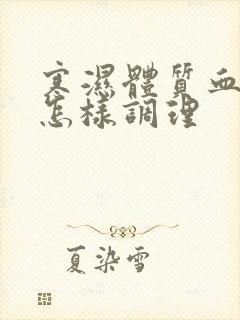 寒濕體質血
怎樣調理
夏染雪